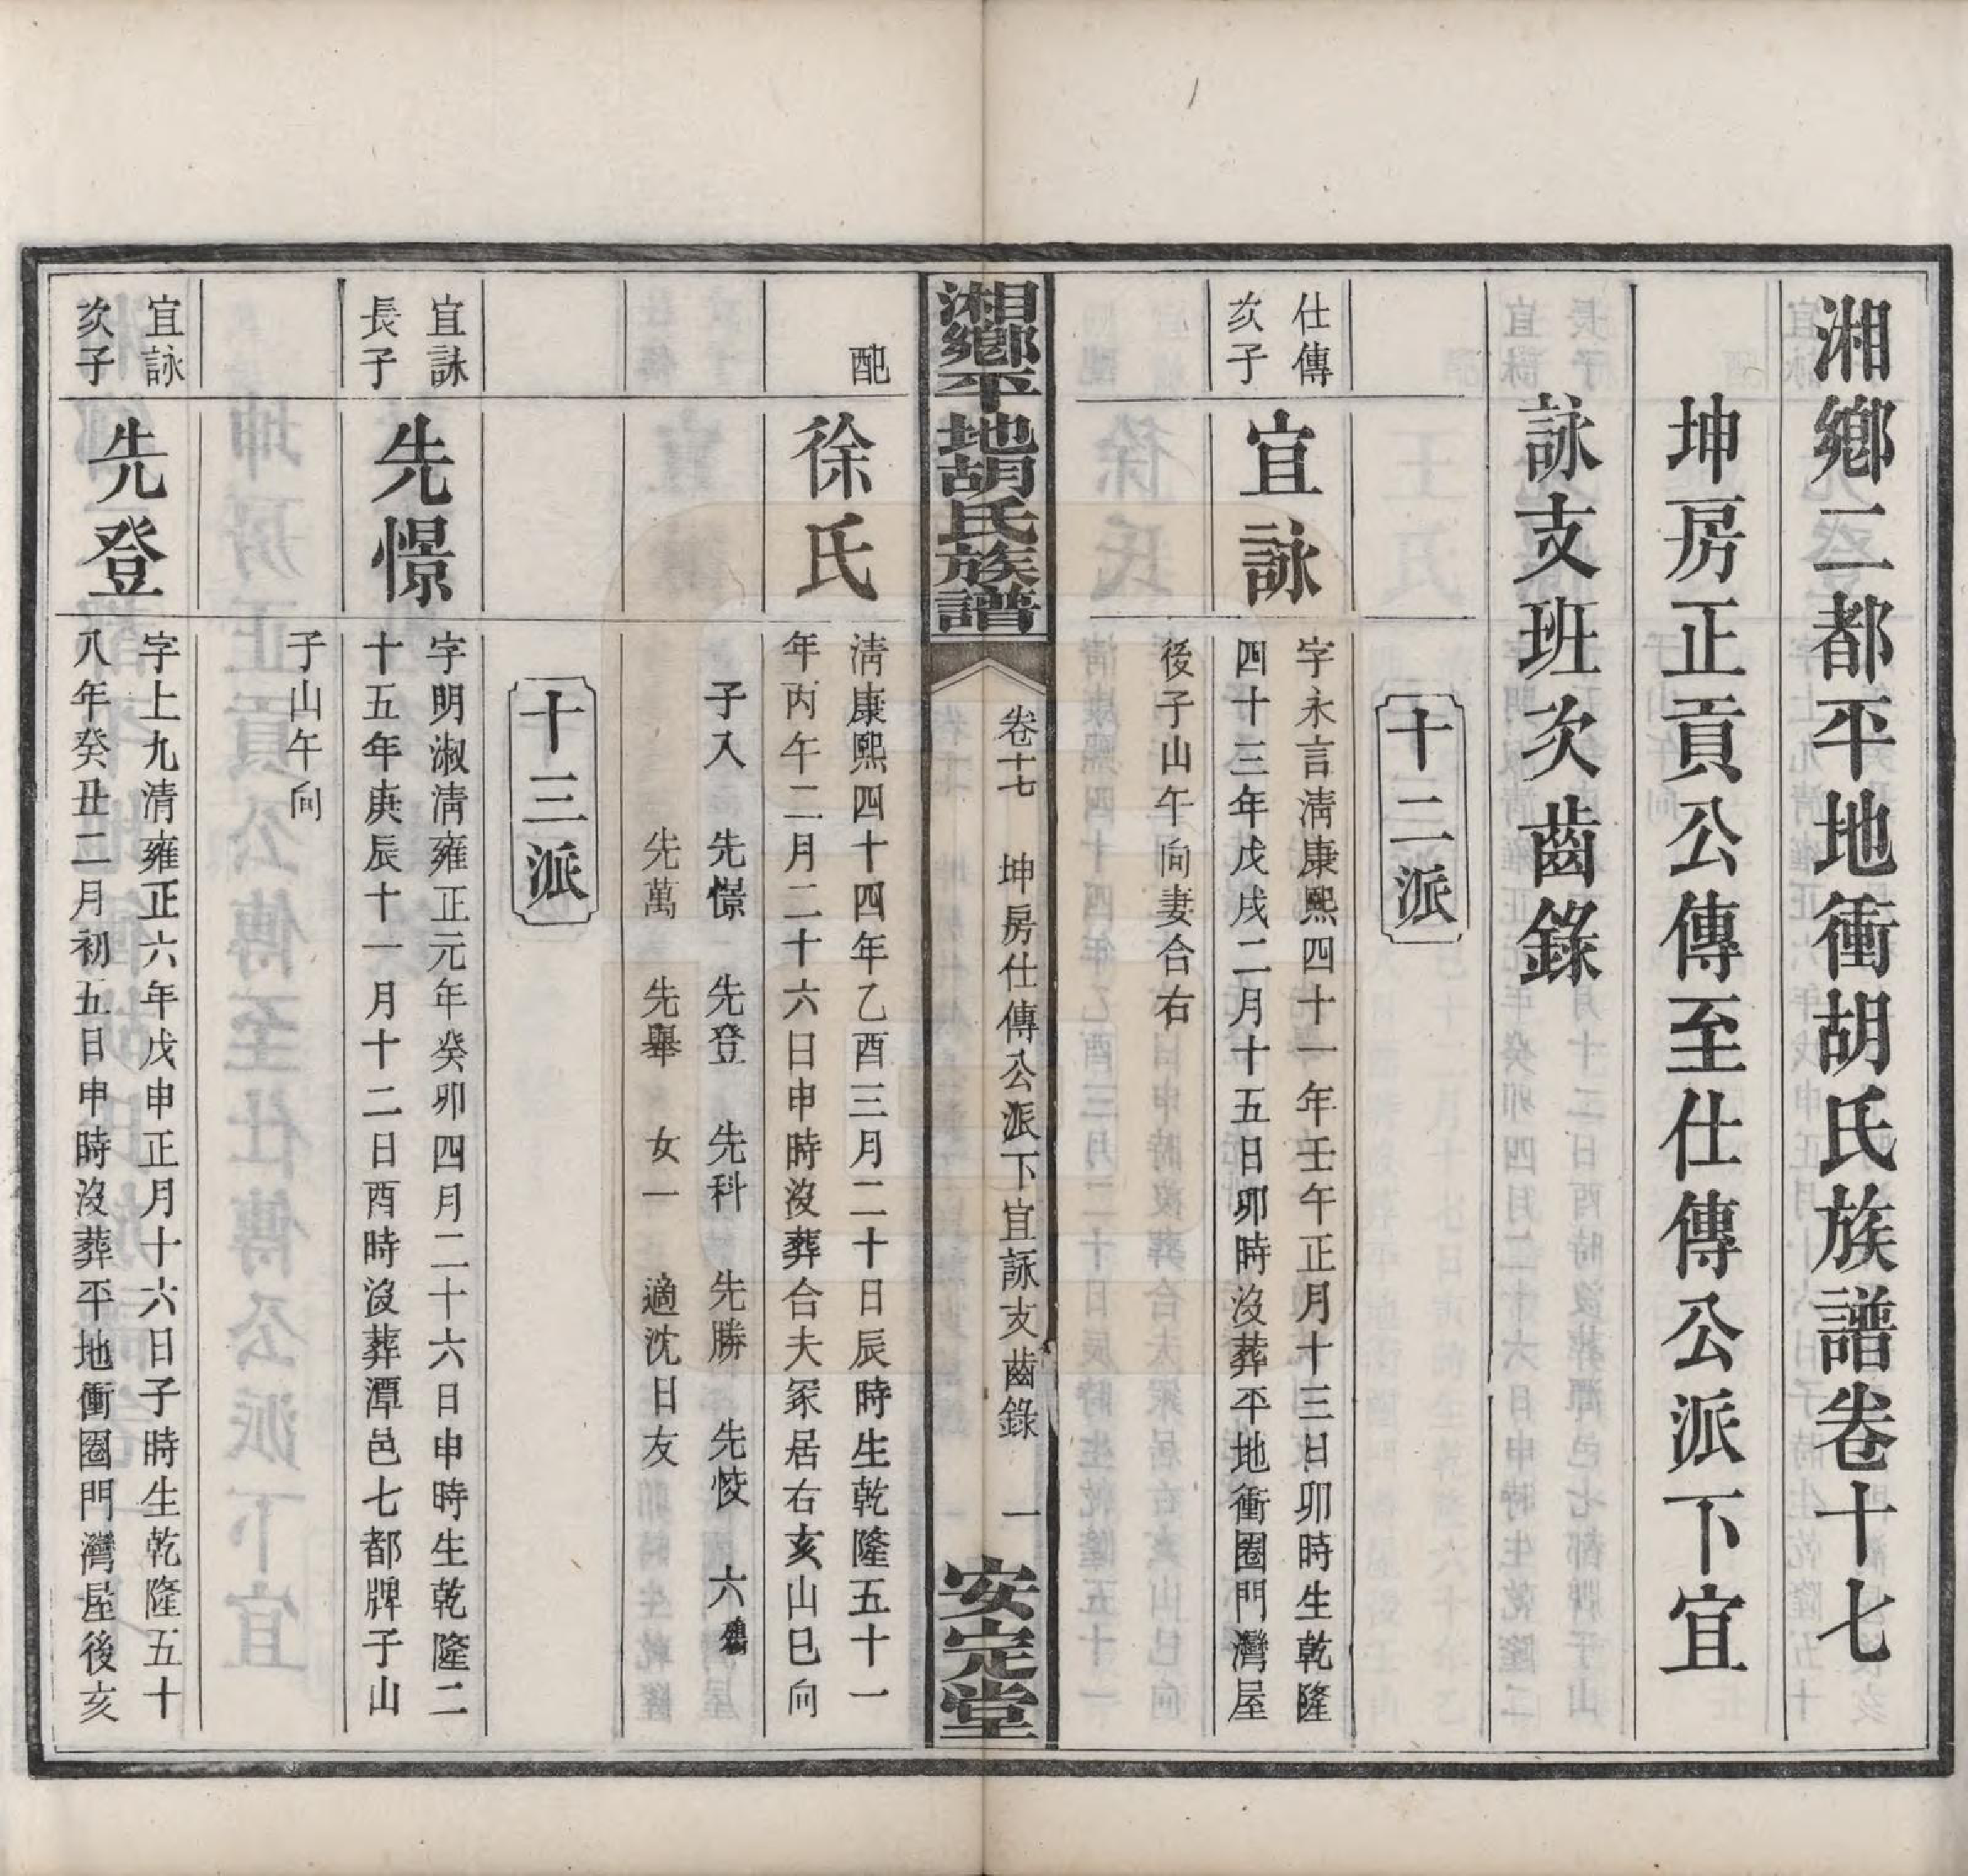 湘鄉二都平地衝胡氏族譜卷十七
坤房正貢公傳至仕傳公派下宜
詠支班次齒錄
十二派
仕傳
次子
宜詠
字永言淸康熙四十一年壬午正月十三日卯時生乾隆
四十三年戊戌二月十五日卯時沒葬平地衝圈門灣屋
後子山午向妻合右
湘鄉平地胡氏族譜
卷十七 坤房仕傳公派下宜詠支齒錄 一
安定堂
配
徐氏
淸康熙四十四年乙酉三月二十日辰時生乾隆五十一
年丙午二月二十六日申時沒葬合夫冢居右亥山巳向
子入 先憬 先登 先科 先勝 先㥄 六
先萬 先舉 女一 適沈日友
十三派
宜詠
長子
先憬
字明淑淸雍正元年癸卯四月二十六日申時生乾隆二
十五年庚辰十一月十二日酉時沒葬潭邑七都牌子山
子山午向
宜詠
次子
先登
字上九清雍正六年戊申正月十六日子時生乾隆五十
八年癸丑二月初五日申時沒葬平地衝圈門灣屋後亥